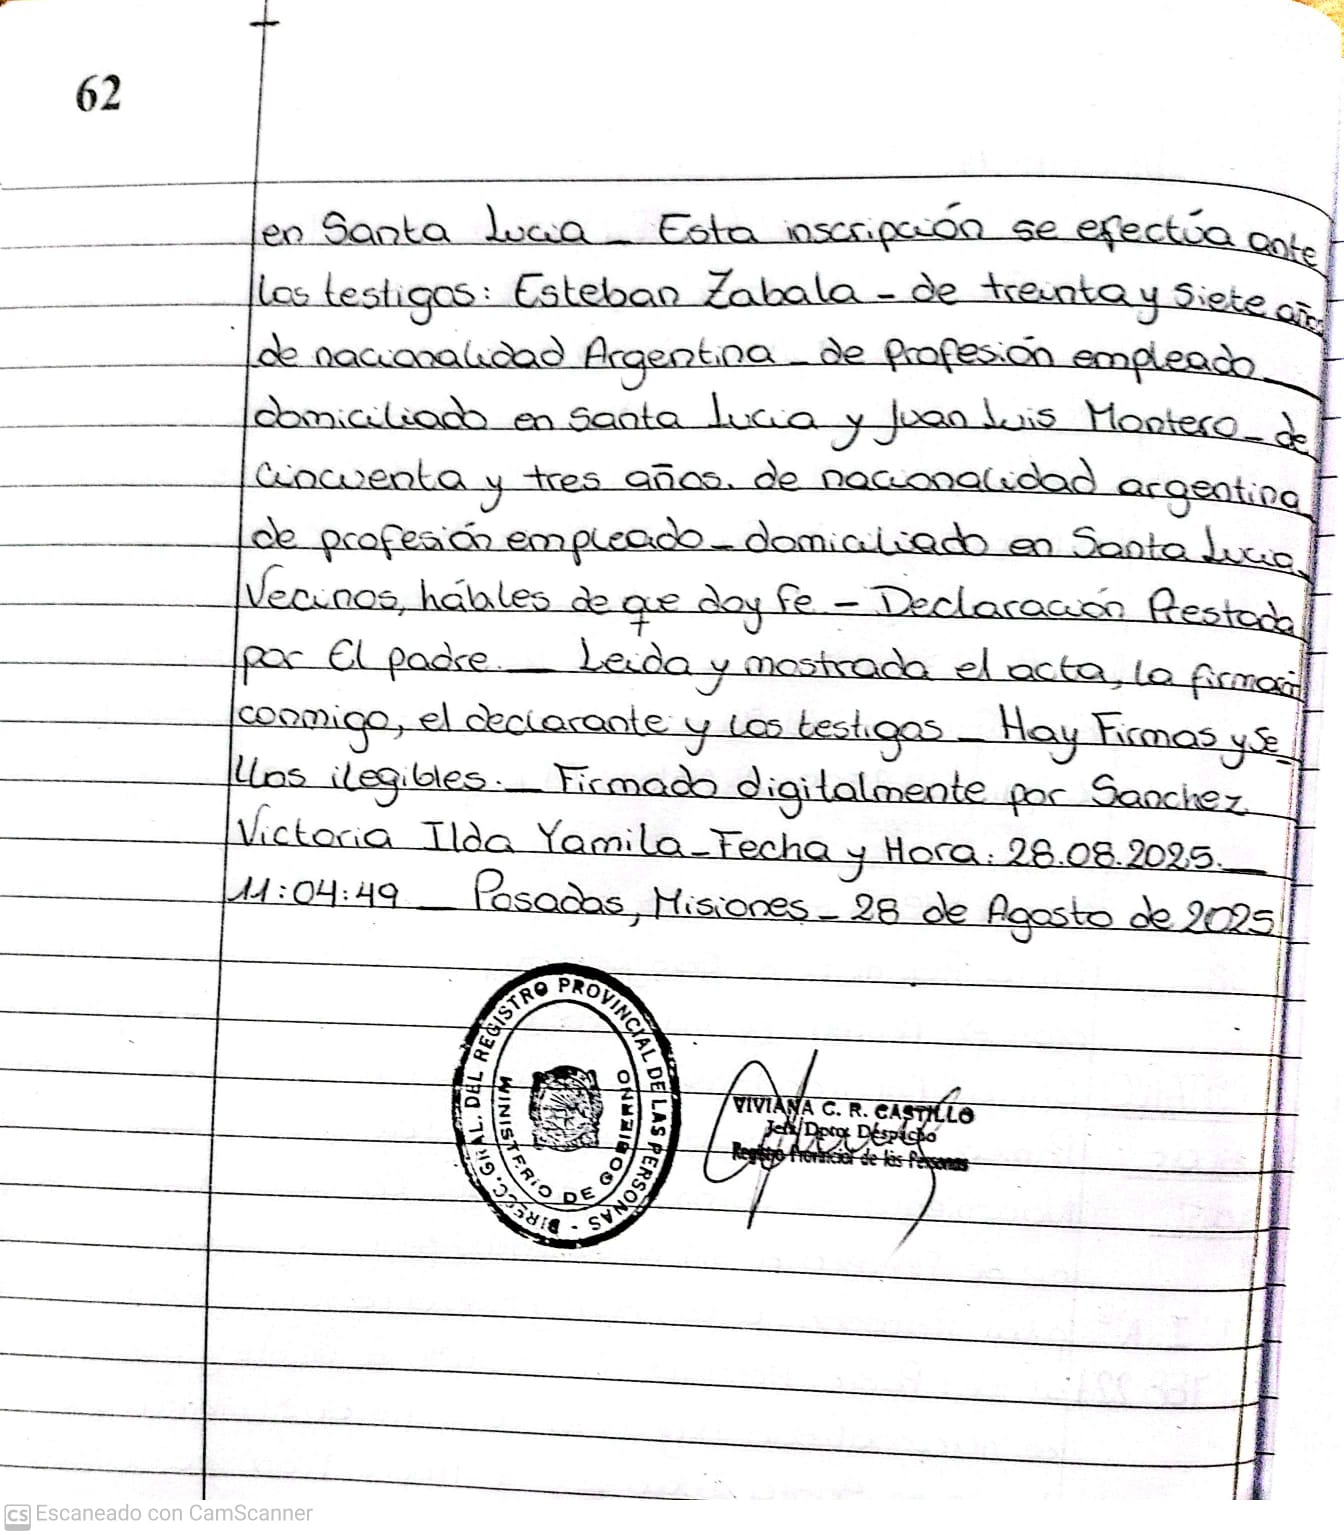 62
en Santa Lucia _ Esta inscripción se efectúa ante
los testigos: Esteban Zabala - de treinta y siete años
de nacionalidad Argentina _ de profesión empleado _
domiciliado en Santa Lucia y Juan Luis Montero _ de
cincuenta y tres años. de nacionalidad argentina
de profesión empleado _ domiciliado en Santa Lucia
Vecinos, hábiles de que doy fe - Declaración Prestada
por El padre. _ Leida y mostrada el acta, la firman
conmigo, el declarante y los testigos _ Hay Firmas y se_
llos ilegibles. _ Firmado digitalmente por Sanchez
Victoria Ilda Yamila _ Fecha y Hora: 28.08.2025. _
11:04:49 _ Posadas, Misiones _ 28 de Agosto de 2025
DIREC. GRAL. DEL REGISTRO PROVINCIAL DE LAS PERSONAS -
MINISTERIO DE GOBIERNO
VIVIANA C. R. CASTILLO
Jefa Dpto. Despacho
Registro Provincial de las Personas
CS Escaneado con CamScanner